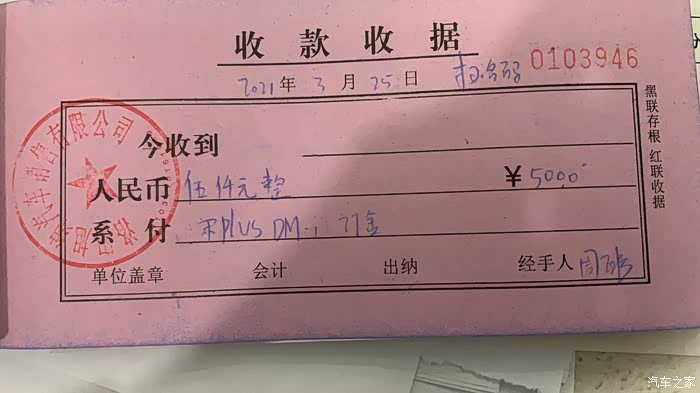 收款收据
2021年3月25日 0103946
今收到
人民币 伍仟元整 ¥5000
系付 宋PLUS DM-i 订金
单位盖章 会计 出纳 经手人 周
黑联存根 红联收据
汽车销售有限公司
汽车之家